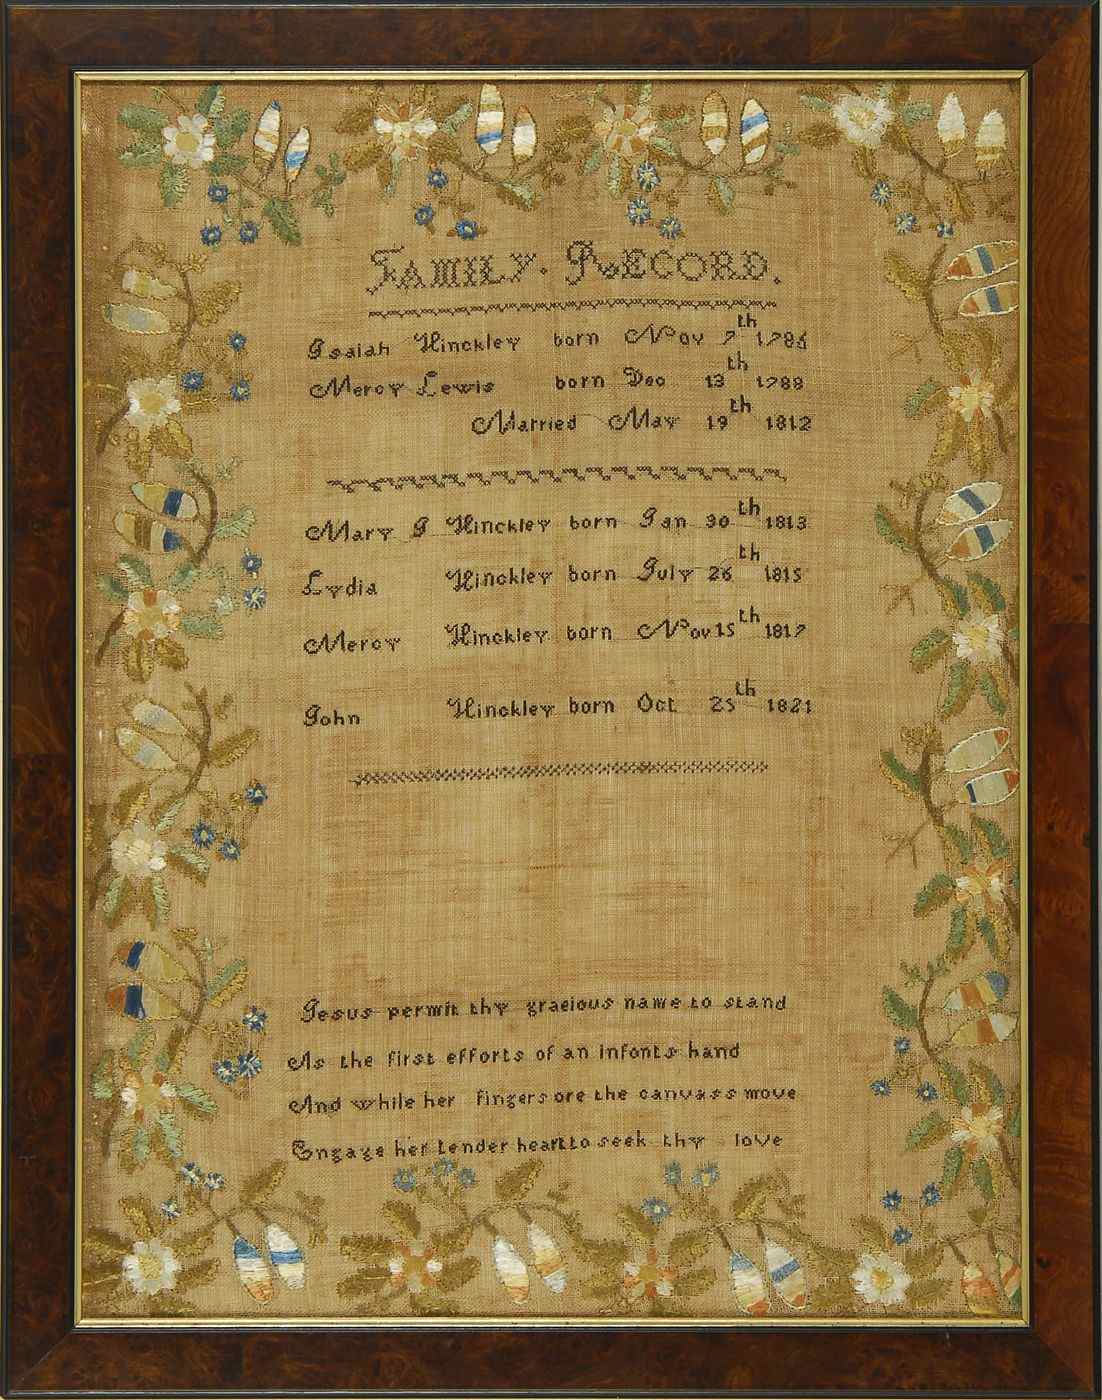 FAMILY. RECORD.
Isaiah Hinckley born Nov 7th 1786
Mercy Lewis born Dec 13th 1788
Married May 19th 1812
Mary G Hinckley born Jan 30th 1813
Lydia Hinckley born July 26th 1815
Mercy Hinckley born Nov 15th 1817
John Hinckley born Oct 25th 1821
Jesus permit thy gracious name to stand
As the first efforts of an infants hand
And while her fingers ore the canvass move
Engage her tender heart to seek thy love